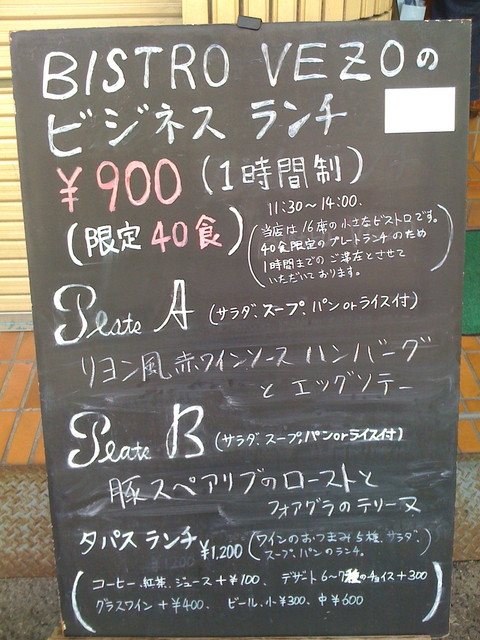 BISTRO VEZOの
ビジネス ランチ
¥900 (1時間制)
(限定40食)
11:30~14:00.
(当店は16席の小さなビストロです。
40食限定のプレートランチのため
1時間までのご滞在とさせて
いただいております。)
Plate A (サラダ、スープ、パン or ライス付)
リヨン風 赤ワインソース ハンバーグ
と エッグソテー
Plate B (サラダ、スープ、パン or ライス付)
豚スペアリブのローストと
フォアグラのテリーヌ
タパス ランチ ¥1,200 (ワインのおつまみ5種、サラダ、
スープ、パンのランチ。)
(コーヒー、紅茶、ジュース+¥100、 デザート6~7種のチョイス+300
グラスワイン+¥400、 ビール、小¥300、中¥600)